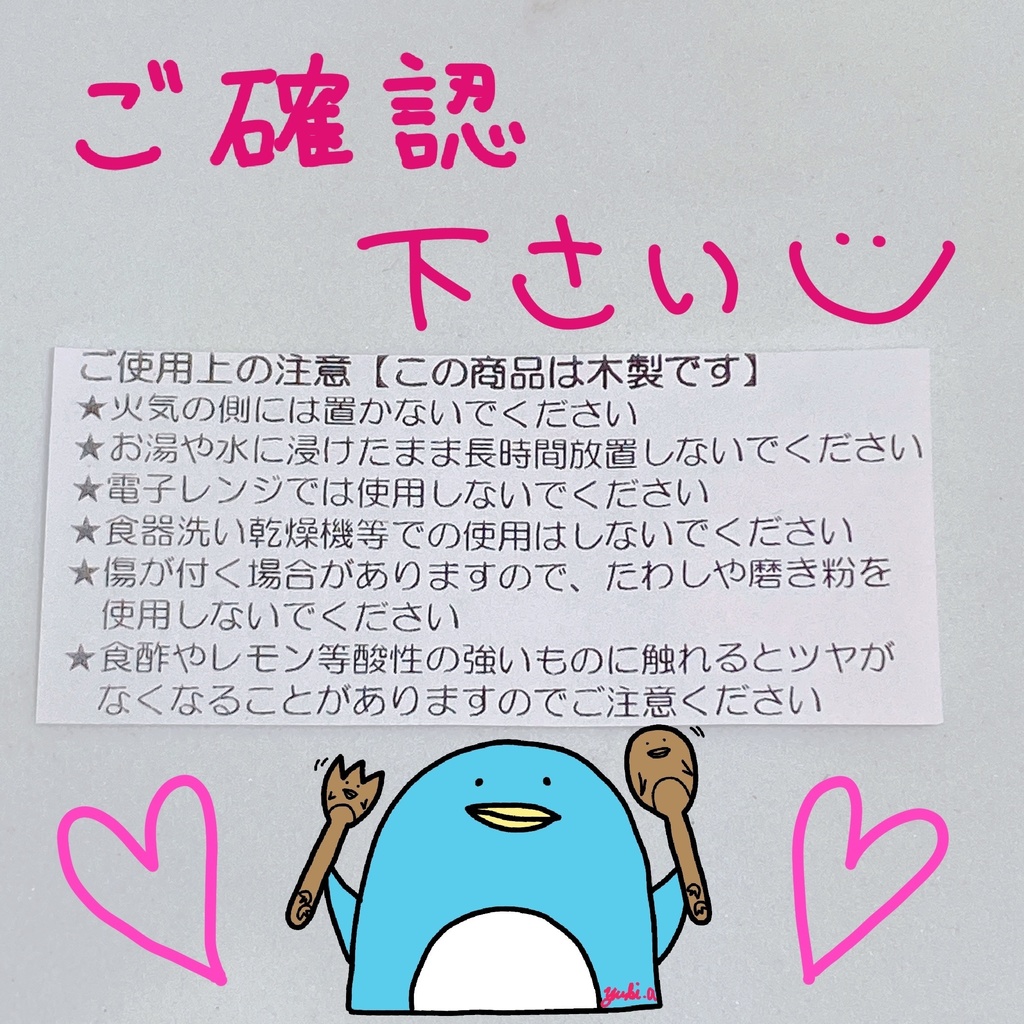 ご確認
下さい
ご使用上の注意【この商品は木製です】
★火気の側には置かないでください
★お湯や水に浸けたまま長時間放置しないでください
★電子レンジでは使用しないでください
★食器洗い乾燥機等での使用はしないでください
★傷が付く場合がありますので、たわしや磨き粉を
使用しないでください
★食酢やレモン等酸性の強いものに触れるとツヤが
なくなることがありますのでご注意ください